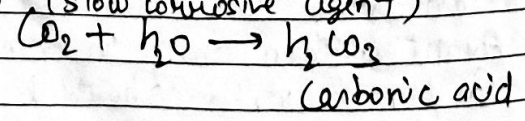 (slow corrosive agent)
CO₂ + h₂o → h₂ CO₃
Carbonic acid